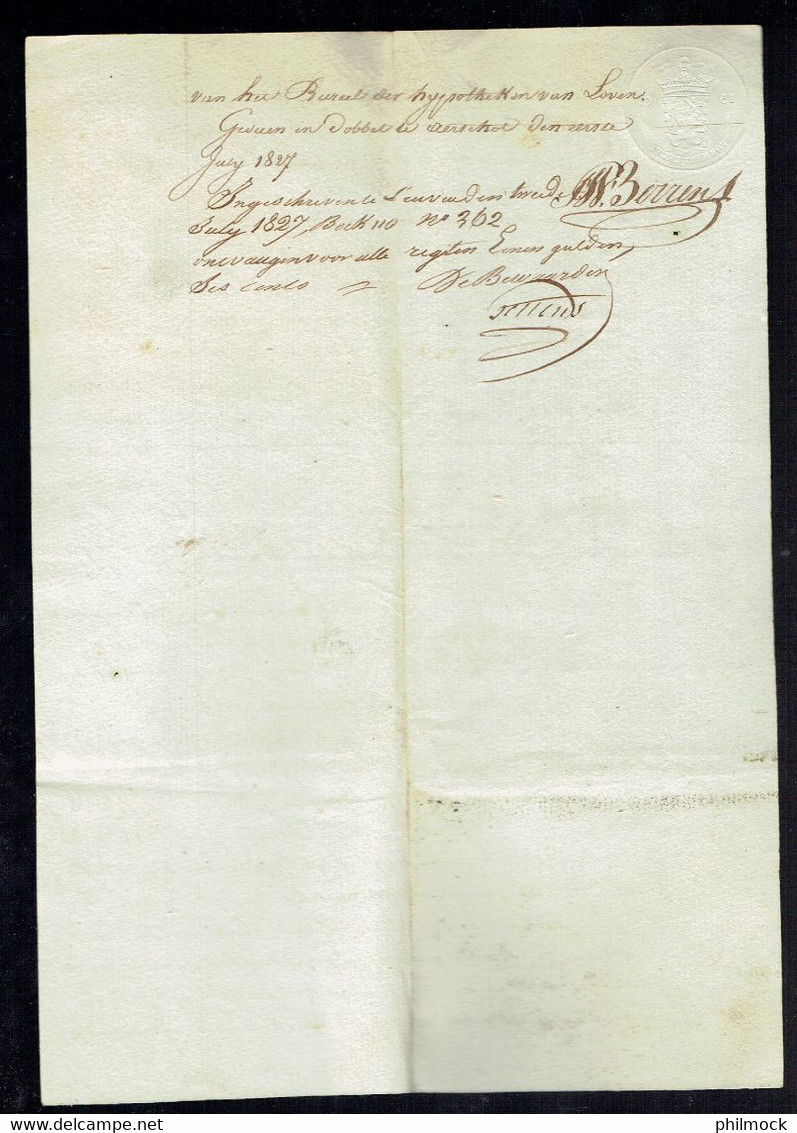 van het Bureel der hypotheken van Loven.
Gedaen in dobbel te aerschot den eerste
July 1827
Ingeschreven te Leuven den twede
W. Berrens
July 1827, Boek 110 n° 362
ontvangen voor alle regten Eenen gulden
Ses cents
De Bewaarder
philmock